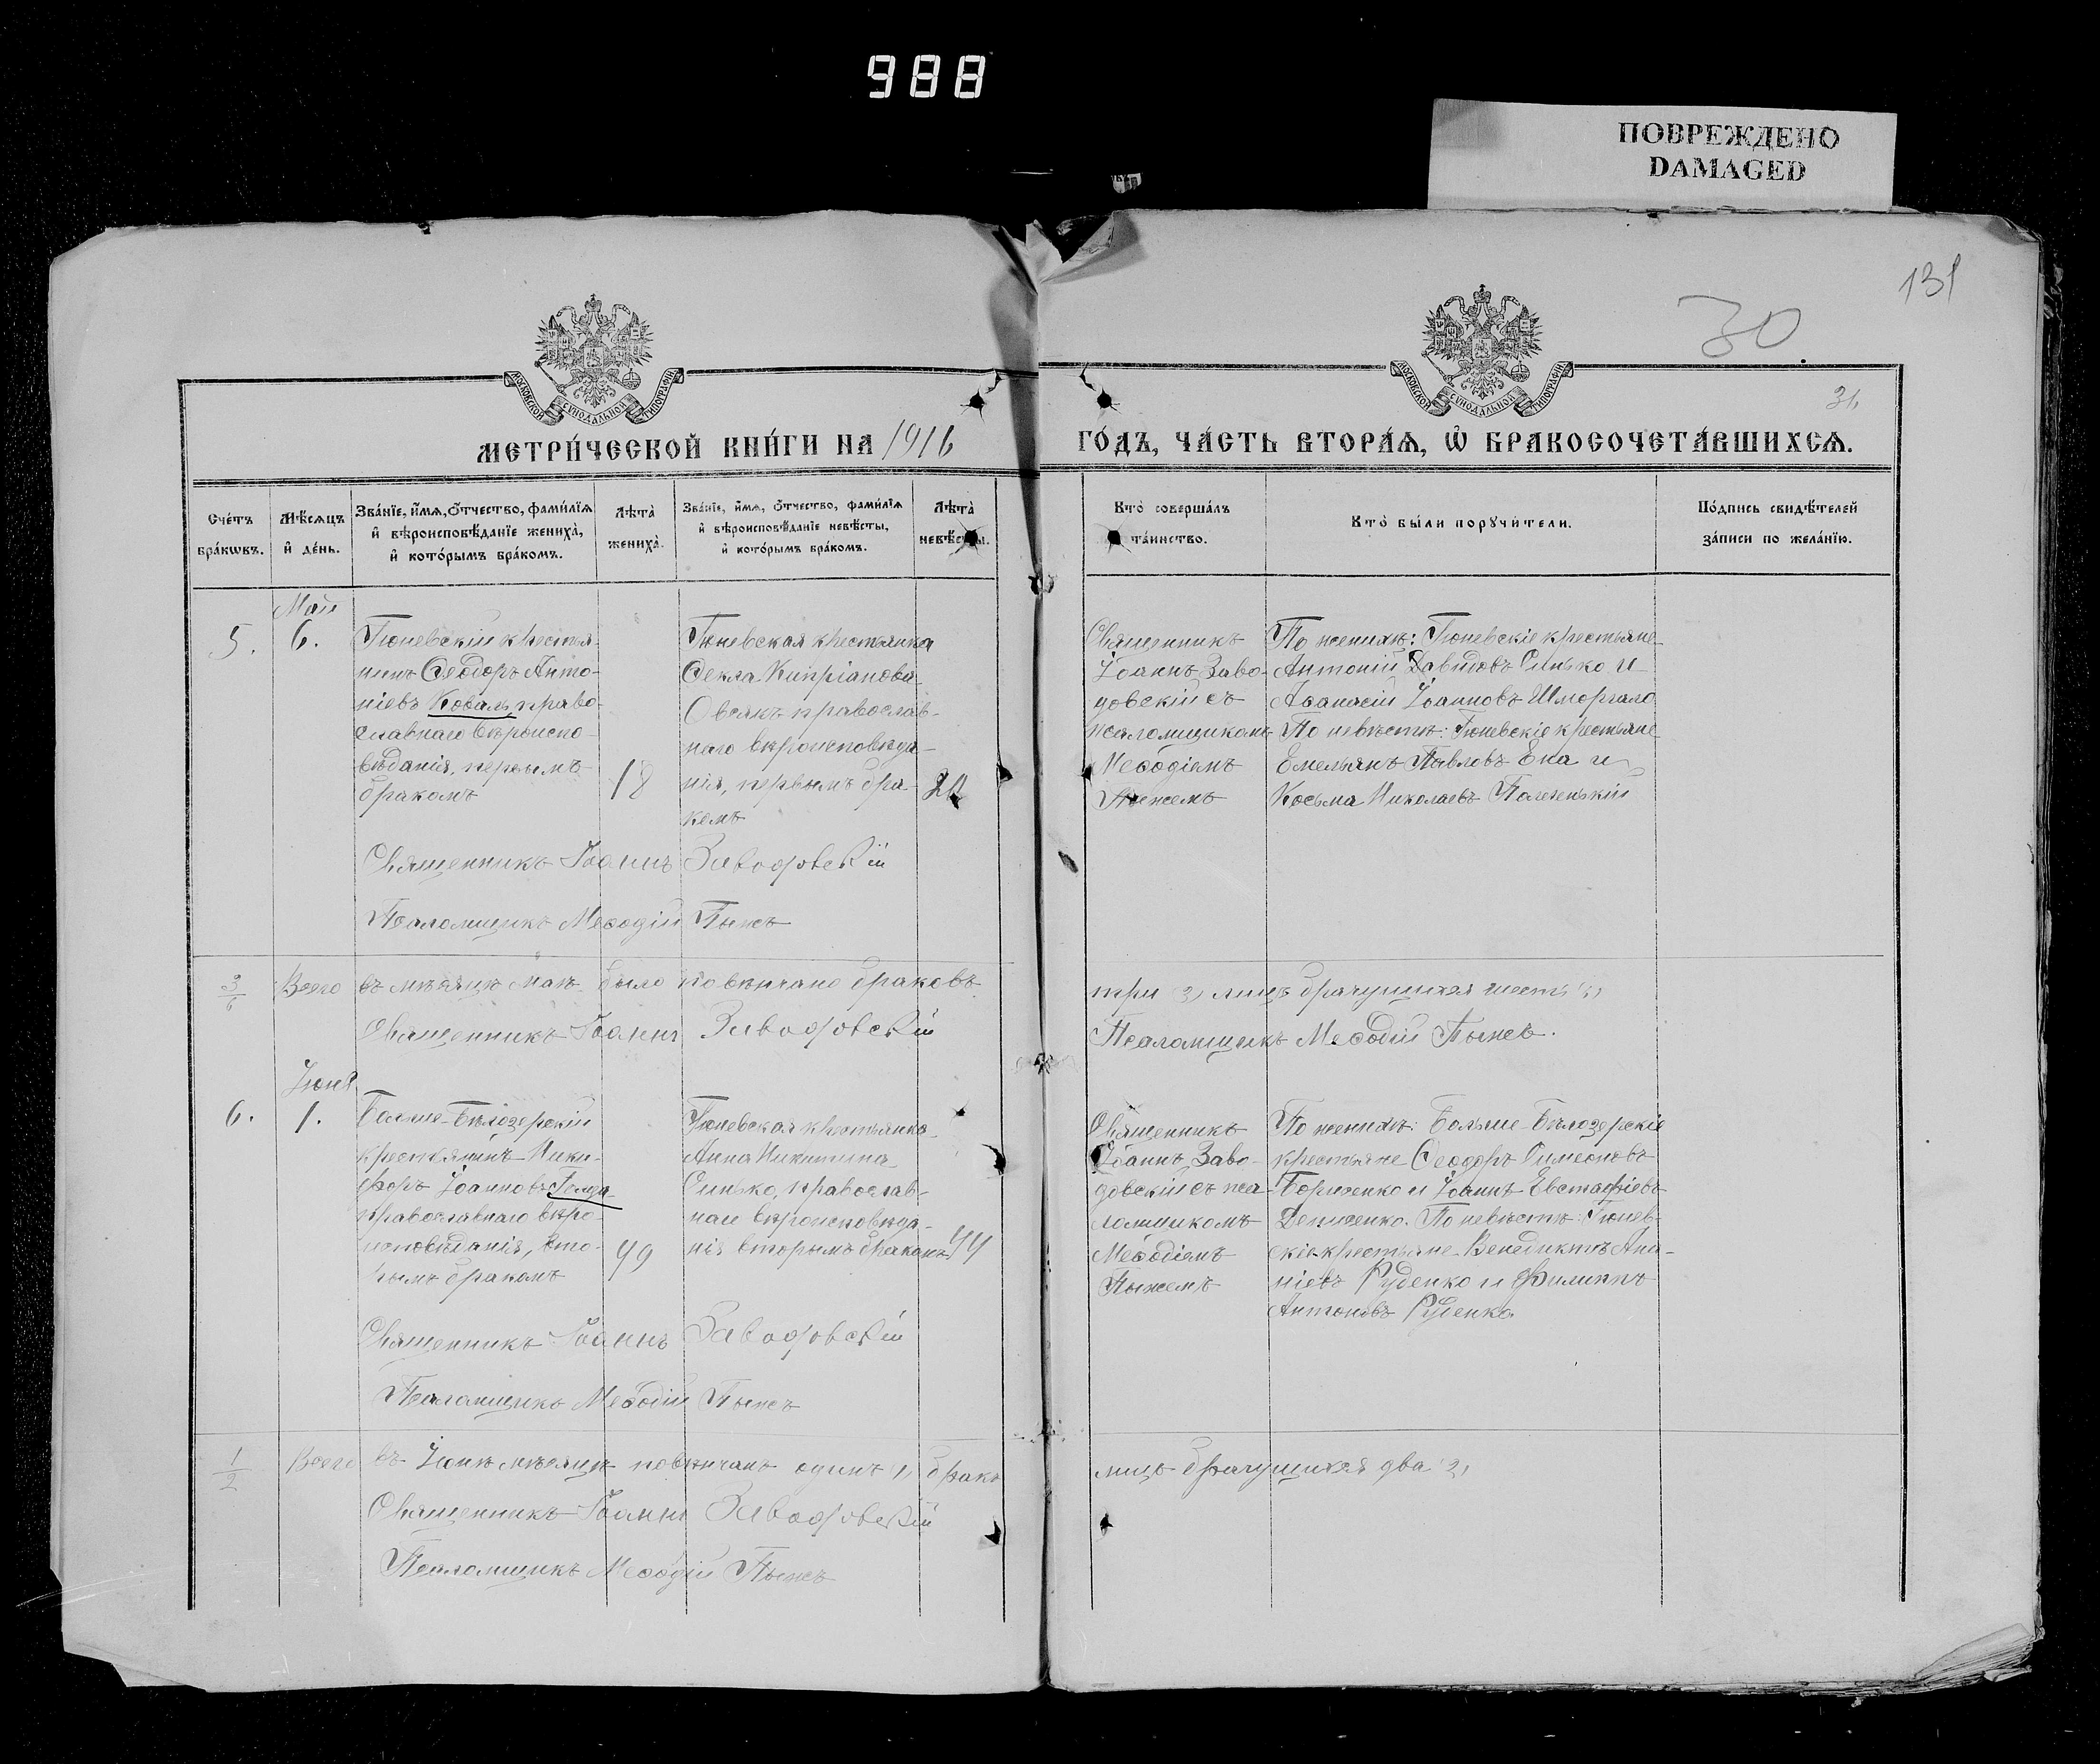 988
ПОВРЕЖДЕНО
DAMAGED
131
30
31
МОСКОВСКОЙ СУНОДАЛЬНОЙ ТИПОГРАФІИ
МОСКОВСКОЙ СУНОДАЛЬНОЙ ТИПОГРАФІИ
МЕТРИ́ЧЕСКОЙ КНИ́ГИ НА 1916
ГО́ДЪ, ЧА́СТЬ ВТОРА́Ѧ, Ѡ БРАКОСОЧЕТА́ВШИХСѦ.
Сче́тъ бра́кѡвъ.
Мѣ́сѧцъ и де́нь.
Зва́нїе, и́мѧ, о́тчество, фами́лїѧ и вѣроисповѣ́данїе жениха̀, и кото́рымъ бра́комъ.
Лѣ́та жениха̀.
Зва́нїе, и́мѧ, о́тчество, фами́лїѧ и вѣроисповѣ́данїе невѣ́сты, и кото́рымъ бра́комъ.
Лѣ́та невѣ́сты.
Кто̀ соверша́лъ та́инство.
Кто̀ бы́ли порꙋчи́тели.
По́дпись свидѣ́телей за́писи по жела́нїю.
5.
Май
6.
Гюневскій крестья-
нинъ Ѳеодоръ Анто-
ніевъ Коваль, право-
славнаго вѣроиспо-
вѣданія, первымъ
бракомъ
18
Гюневская крестьянка
Ѳекла Кипріанова
Овсякъ православ-
наго вѣроисповѣда-
нія, первымъ бра-
комъ
Священникъ
Іоаннъ Заво-
довскій съ
псаломщикомъ
Меѳодіемъ
Пыжемъ
По женихѣ: Гюневскіе крестьяне
Антоній Давидовъ Синько и
Аѳанасій Іоанновъ Шморгало
По невѣстѣ: Гюневскіе крестьяне
Емельянъ Павловъ Ена и
Косьма Николаевъ
Священникъ Іоаннъ Заводовскій
Псаломщикъ Меѳодій Пыжъ
3/6
Всего въ мѣсяцѣ Маѣ было повѣнчано браковъ
три 3) лицъ брачущихся шесть 6)
Священникъ Іоаннъ Заводовскій
Псаломщикъ Меѳодій Пыжъ.
6.
Іюнь
1.
Больше-Бѣлозерскій
крестьянинъ Ники-
форъ Іоанновъ
православнаго вѣро-
исповѣданія, вто-
рымъ бракомъ
49
Гюневская крестьянка
Анна Никитина
Синько, православ-
наго вѣроисповѣда-
нія вторымъ бракомъ
44
Священникъ
Іоаннъ Заво-
довскій съ пса-
ломщикомъ
Меѳодіемъ
Пыжемъ
По женихѣ: Больше-Бѣлозерскіе
крестьяне Ѳеодоръ Симеоновъ
Борисенко и Іоаннъ Евстафіевъ
Денисенко. По невѣстѣ: Гюнев-
скіе крестьяне Венедиктъ Ана-
ніевъ Руденко и Филиппъ
Антоновъ Руденко
Священникъ Іоаннъ Заводовскій
Псаломщикъ Меѳодій Пыжъ
1/2
Всего въ Іюнѣ мѣсяцѣ повѣнчанъ одинъ 1) бракъ
лицъ брачущихся два 2)
Священникъ Іоаннъ Заводовскій
Псаломщикъ Меѳодій Пыжъ